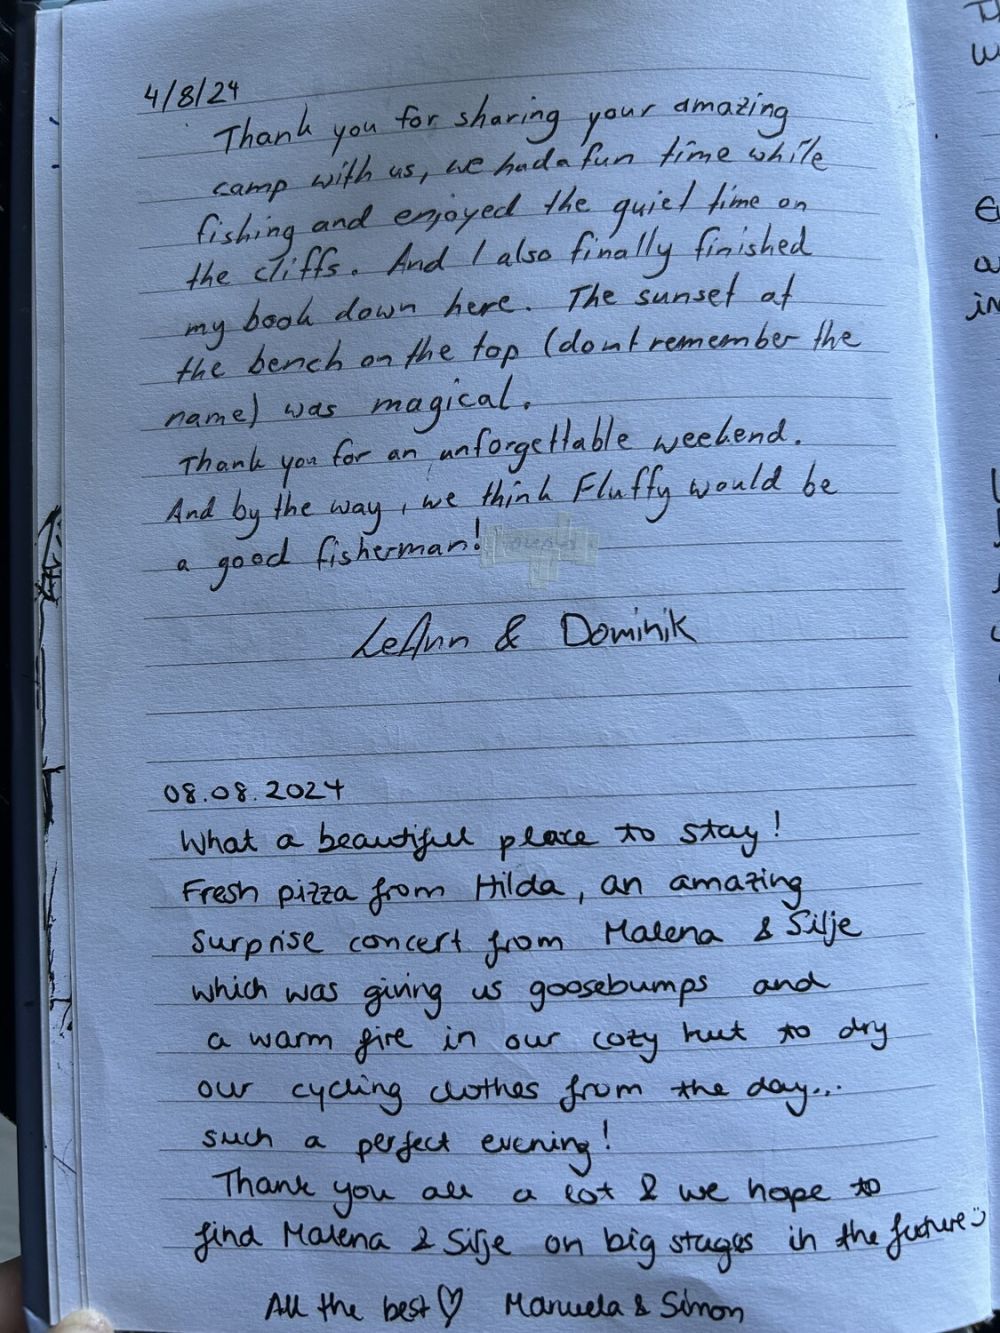 4/8/24
Thank you for sharing your amazing
camp with us, we had a fun time while
fishing and enjoyed the quiet time on
the cliffs. And I also finally finished
my book down here. The sunset at
the bench on the top (dont remember the
name) was magical.
Thank you for an unforgettable weekend.
And by the way, we think Fluffy would be
a good fisherman!
LeAnn & Dominik
08.08.2024
What a beautiful place to stay!
Fresh pizza from Hilda, an amazing
surprise concert from Malena & Silje
which was giving us goosebumps and
a warm fire in our cozy hut to dry
our cycling clothes from the day...
such a perfect evening!
Thank you all a lot & we hope to
find Malena & Silje on big stages in the future :)
All the best ♡ Manuela & Simon